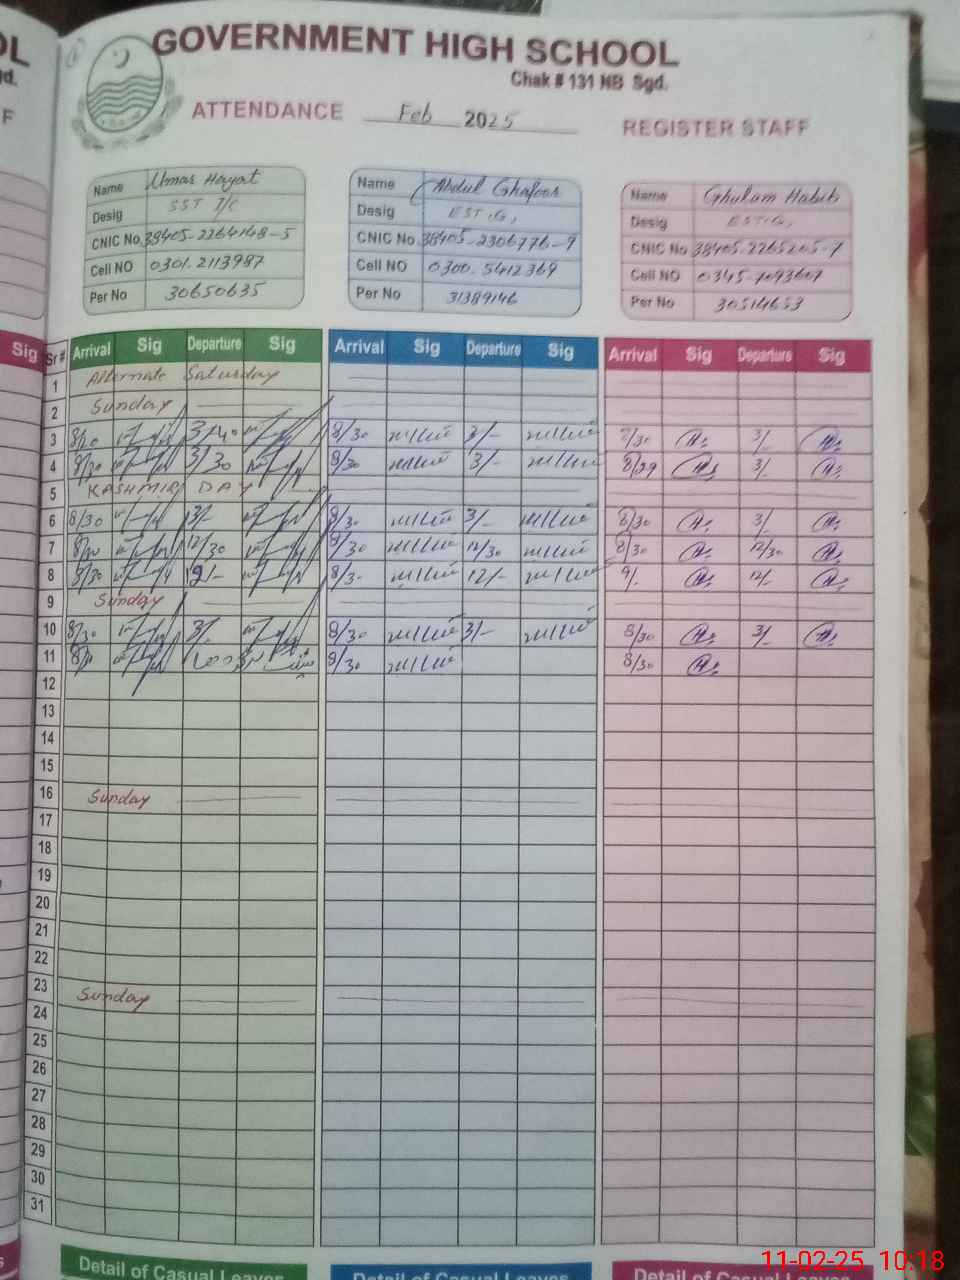 GOVERNMENT HIGH SCHOOL
Chak # 131 NB Sgd.
ATTENDANCE Feb 2025 REGISTER STAFF
Name Umar Hayat
Desig SST I/C
CNIC No 38405-2264148-5
Cell NO 0301.2113987
Per No 30650635
Name Abdul Ghafoor
Desig EST.G,
CNIC No 38405-2306776-9
Cell NO 0300.5412369
Per No 31389146
Name Ghulam Habib
Desig EST.G,
CNIC No 38405-2265265-7
Cell NO 0345-7093607
Per No 30514653
Sig
Sr # Arrival Sig Departure Sig Arrival Sig Departure Sig Arrival Sig Departure Sig
1 Alternate Saturday
2 Sunday
3 8/30 3/40 8/30 3/- 8/30 3/-
4 8/30 3/30 8/30 3/- 8/29 3/-
5 KASHMIR DAY
6 8/30 3/- 8/30 3/- 8/30 3/-
7 8/30 12/30 8/30 12/30 8/30 12/30
8 8/30 12/- 8/30 12/- 9/- 12/-
9 Sunday
10 8/30 3/- 8/30 3/- 8/30 3/-
11 8/30 8/30
12
13
14
15
16 Sunday
17
18
19
20
21
22
23 Sunday
24
25
26
27
28
29
30
31
Detail of Casual Leaves Detail of Casual Leaves Detail of Casual Leaves
11-02-25 10:18